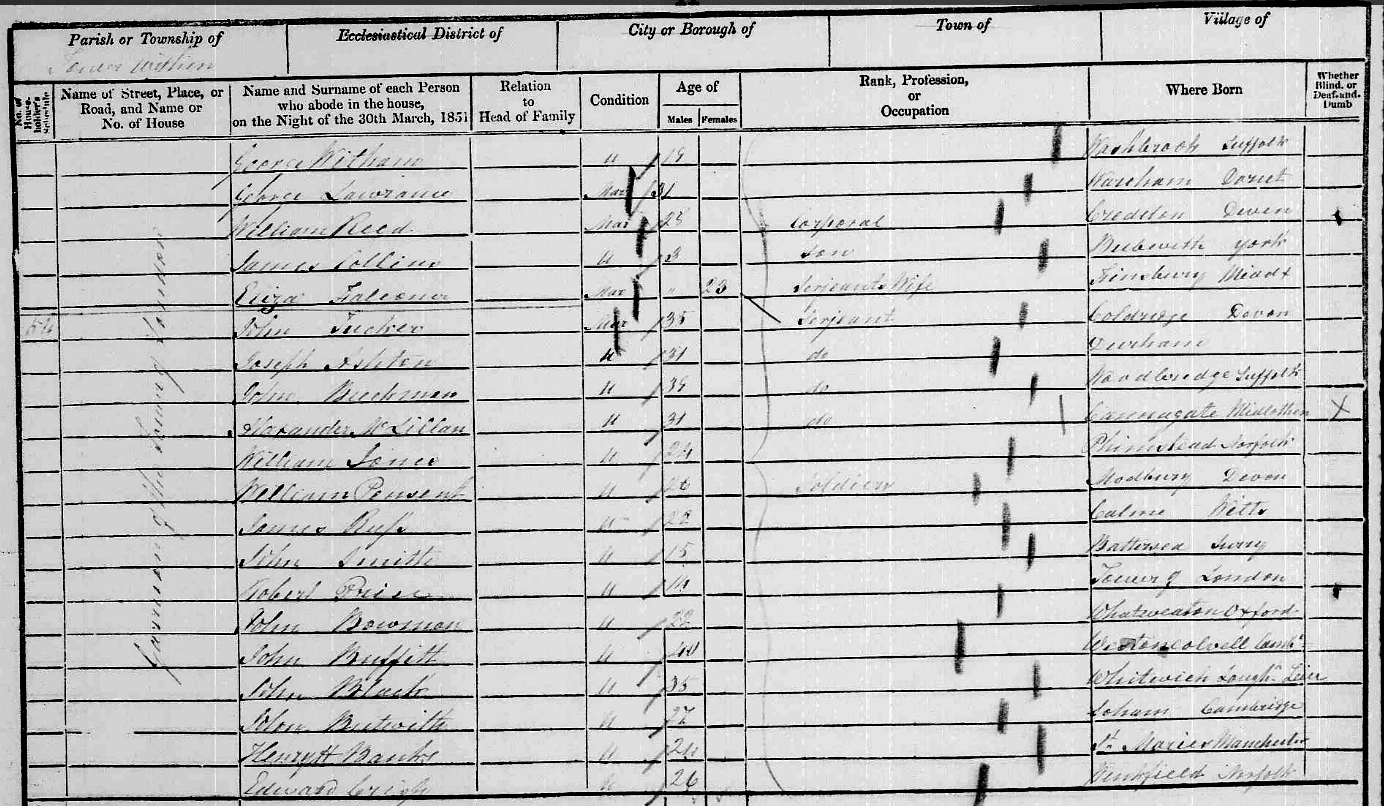 Parish or Township of Ecclesiastical District of City or Borough of Town of Village of
Tower Within
No. of House-holder's Schedule Name of Street, Place, or Road, and Name or No. of House Name and Surname of each Person who abode in the house, on the Night of the 30th March, 1851 Relation to Head of Family Condition Age of Males Females Rank, Profession, or Occupation Where Born Whether Blind, or Deaf-and-Dumb
Garrison of the Tower of London
George Witham U 19 Washbrook Suffolk
George Lawrance Mar 31 Wareham Dorset
William Reed Mar 28 Corporal Crediton Devon
James Collins U 3 Son Bubwith York
Eliza Falconer Mar " 23 Serjeants Wife Finsbury Middx
54 John Tucker Mar 35 Serjeant Coldridge Devon
Joseph Ashton U 31 do Durham
John U 39 do Woodbridge Suffolk
Alexander McLillan U 31 do Cannagate Midlothian
William Jones U 24 Norfolk
William U Soldier Modbury Devon
James U 22 Calne Wilts
John Smith U 15 Battersea Surry
Robert U 14 Tower of London
John Bowman U 22 Oxford
John U
John Black U 35 Whitwich Lough Leier
U 27 Soham Cambridge
Henry H Banks U 24 St Maries Manchester
Edward U 26 Norfolk